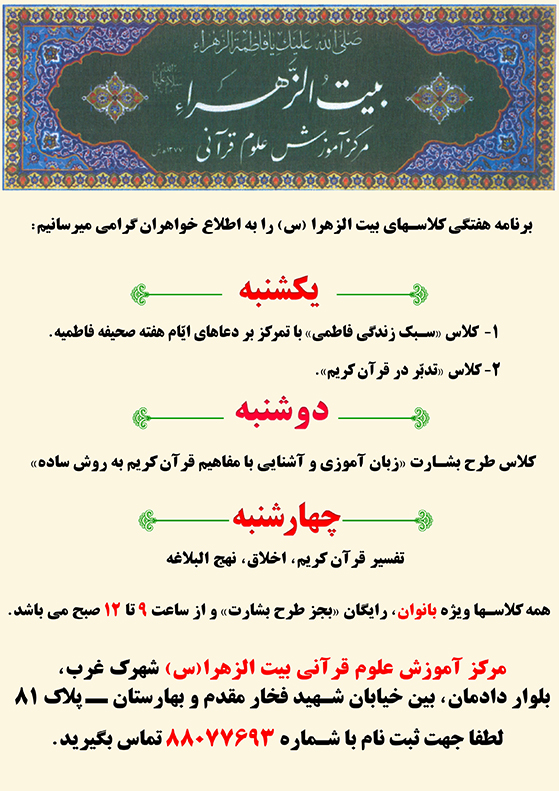 صلی الله علیک یا فاطمة الزهراء
بیت الزهراء
مرکز آموزش علوم قرآنی
برنامه هفتگی کلاسهای بیت الزهرا (س) را به اطلاع خواهران گرامی میرسانیم:
یکشنبه
۱- کلاس «سبک زندگی فاطمی» با تمرکز بر دعاهای ایّام هفته صحیفه فاطمیه.
۲- کلاس «تدبّر در قرآن کریم».
دوشنبه
کلاس طرح بشارت «زبان آموزی و آشنایی با مفاهیم قرآن کریم به روش ساده»
چهارشنبه
تفسیر قرآن کریم، اخلاق، نهج البلاغه
همه کلاسها ویژه بانوان، رایگان «بجز طرح بشارت» و از ساعت ۹ تا ۱۲ صبح می باشد.
مرکز آموزش علوم قرآنی بیت الزهرا(س) شهرک غرب،
بلوار دادمان، بین خیابان شهید فخار مقدم و بهارستان — پلاک ۸۱
لطفا جهت ثبت نام با شماره ۸۸۰۷۷۶۹۳ تماس بگیرید.